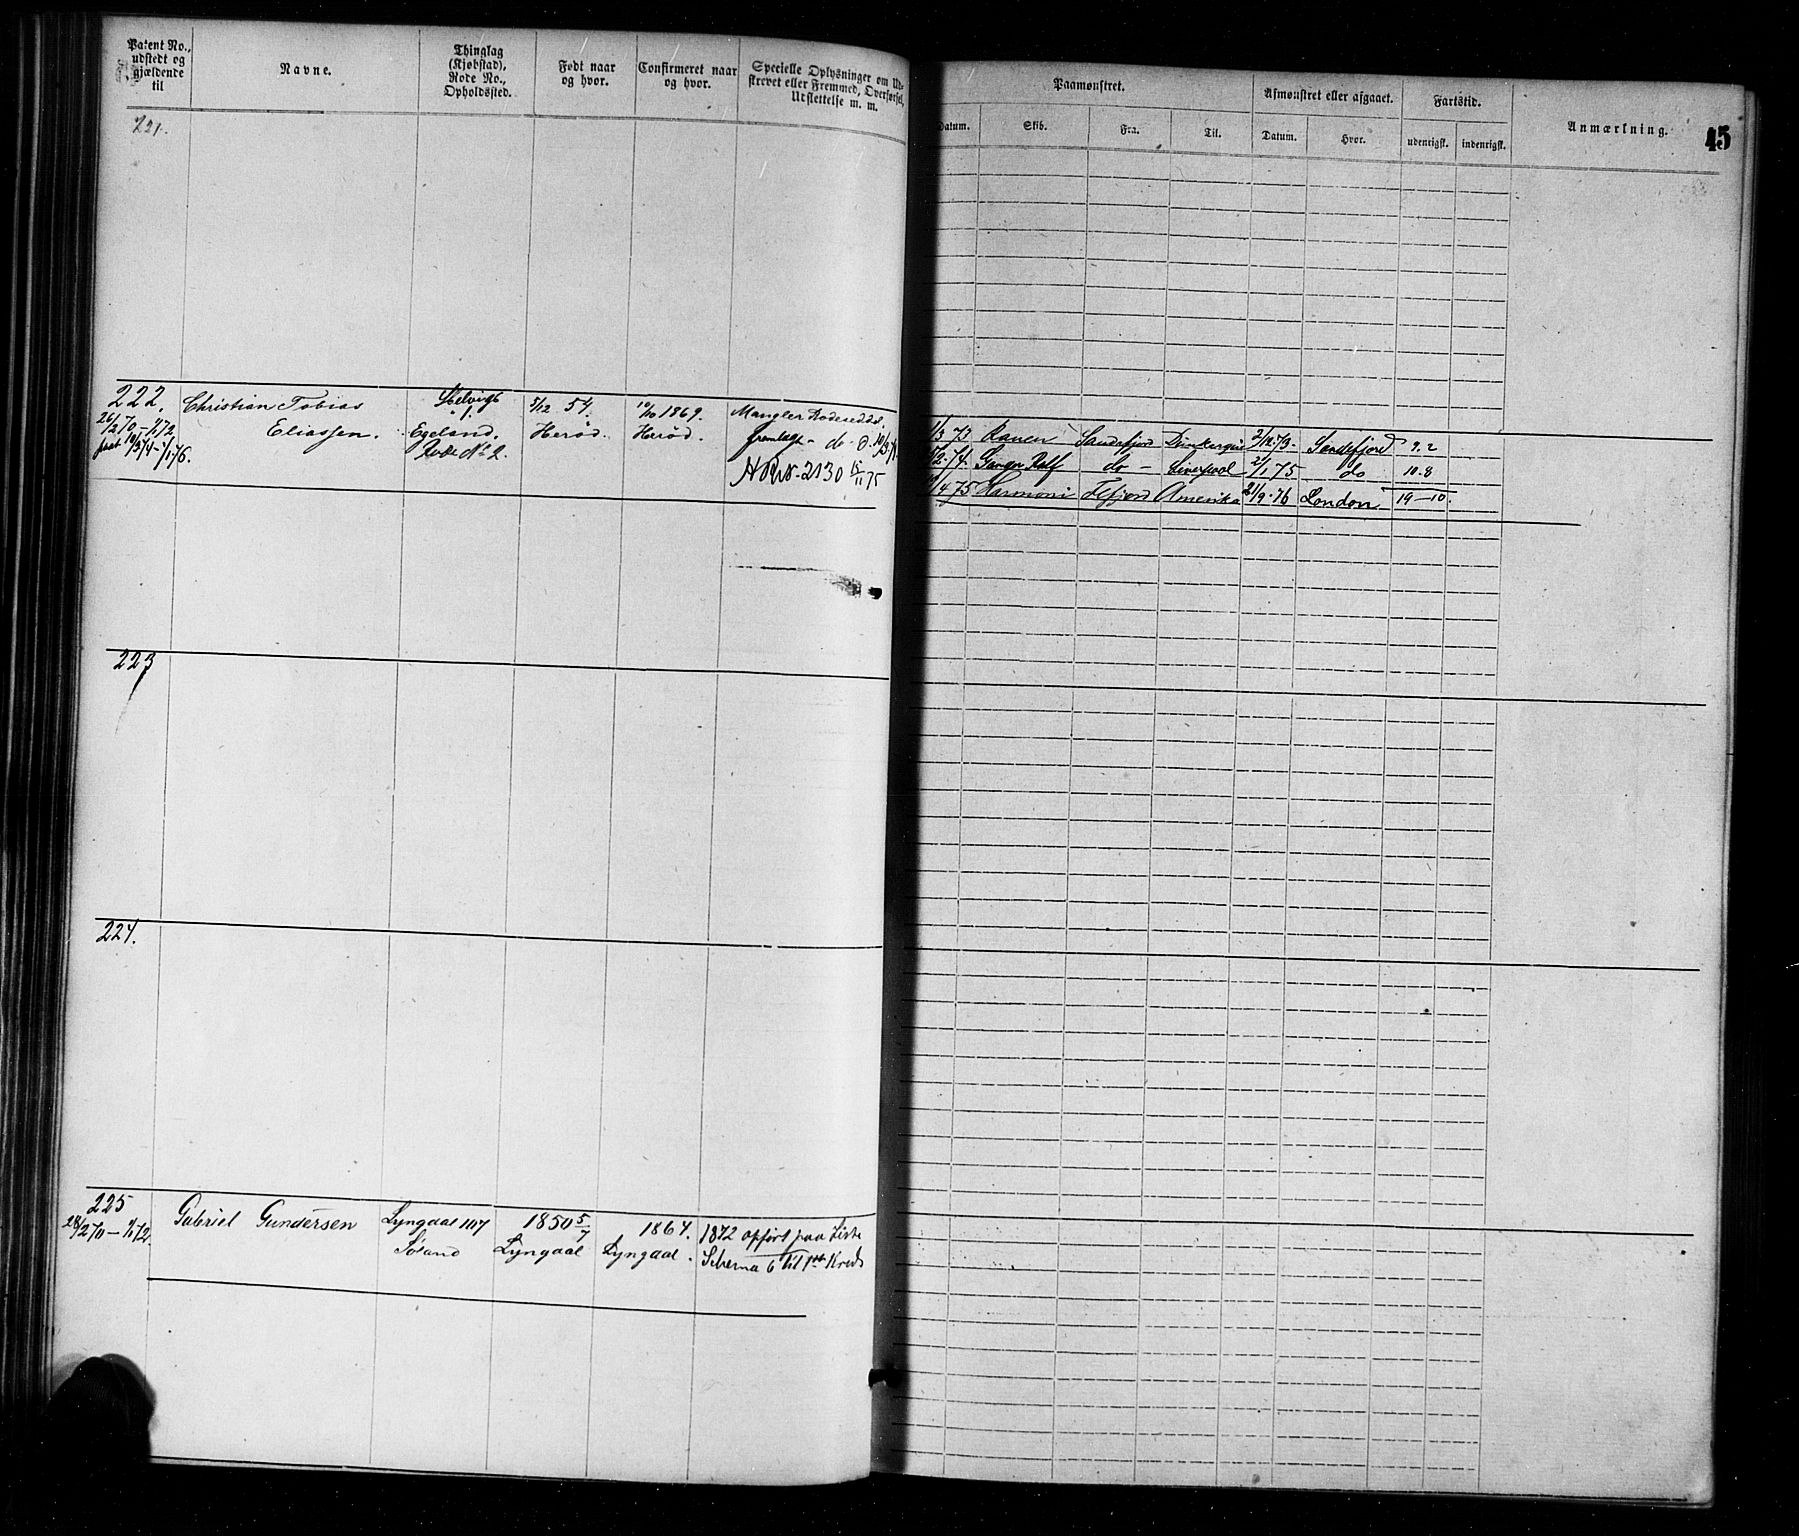 Patent No., udstedt og gjældende til
Navne.
Thinglag (Kjøbstad), Rode No., Opholdssted.
Født naar og hvor.
Confirmeret naar og hvor.
Specielle Oplysninger om Ud-
skrevet eller Fremmed, Overførsel,
Udslettelse m. m.
Paamønstret.
Afmønstret eller afgaaet.
Fartstid.
Anmærkning.
45
Datum.
Skib.
Fra.
Til.
Datum.
Hvor.
udenrigsk.
indenrigsk.
221.
222.
Christian Tobias
Eliassen.
Egeland.
Rode No 2.
5/12 54.
Herød.
10/10 1869.
Herød.
Mangler Rodeseddel.
fremlagt - do - d.
2130 15/11 75
1/3 73 Ranen Sandefjord Dunkerque 2/12.73. Sandefjord 9.2
2.74. Ganger Rolf do - Liverpool 2/1 75 do 10.8
4 75 Harmoni Amerika 21/9.76 London 19-10.
223
224.
225
28/2 70 - 1/1 72.
Gabriel Gundersen
Lyngdal 107
1850 5/7
Lyngdal
1864.
Lyngdal.
1872 opført paa Liste
Schema 6 til 1ste Kreds